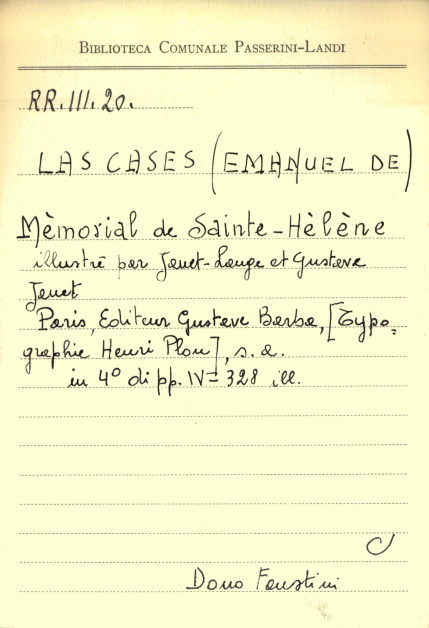 BIBLIOTECA COMUNALE PASSERINI-LANDI
RR.III.20.
LAS CASES (EMANUEL DE)
Mèmorial de Sainte-Hèlène
illustré par Janet-Lange et Gustave
Janet
Paris, Editeur Gustave Barba, [Typo=
graphie Henri Plon], s.a.
in 4° di pp. IV=328 ill.
Dono Faustini